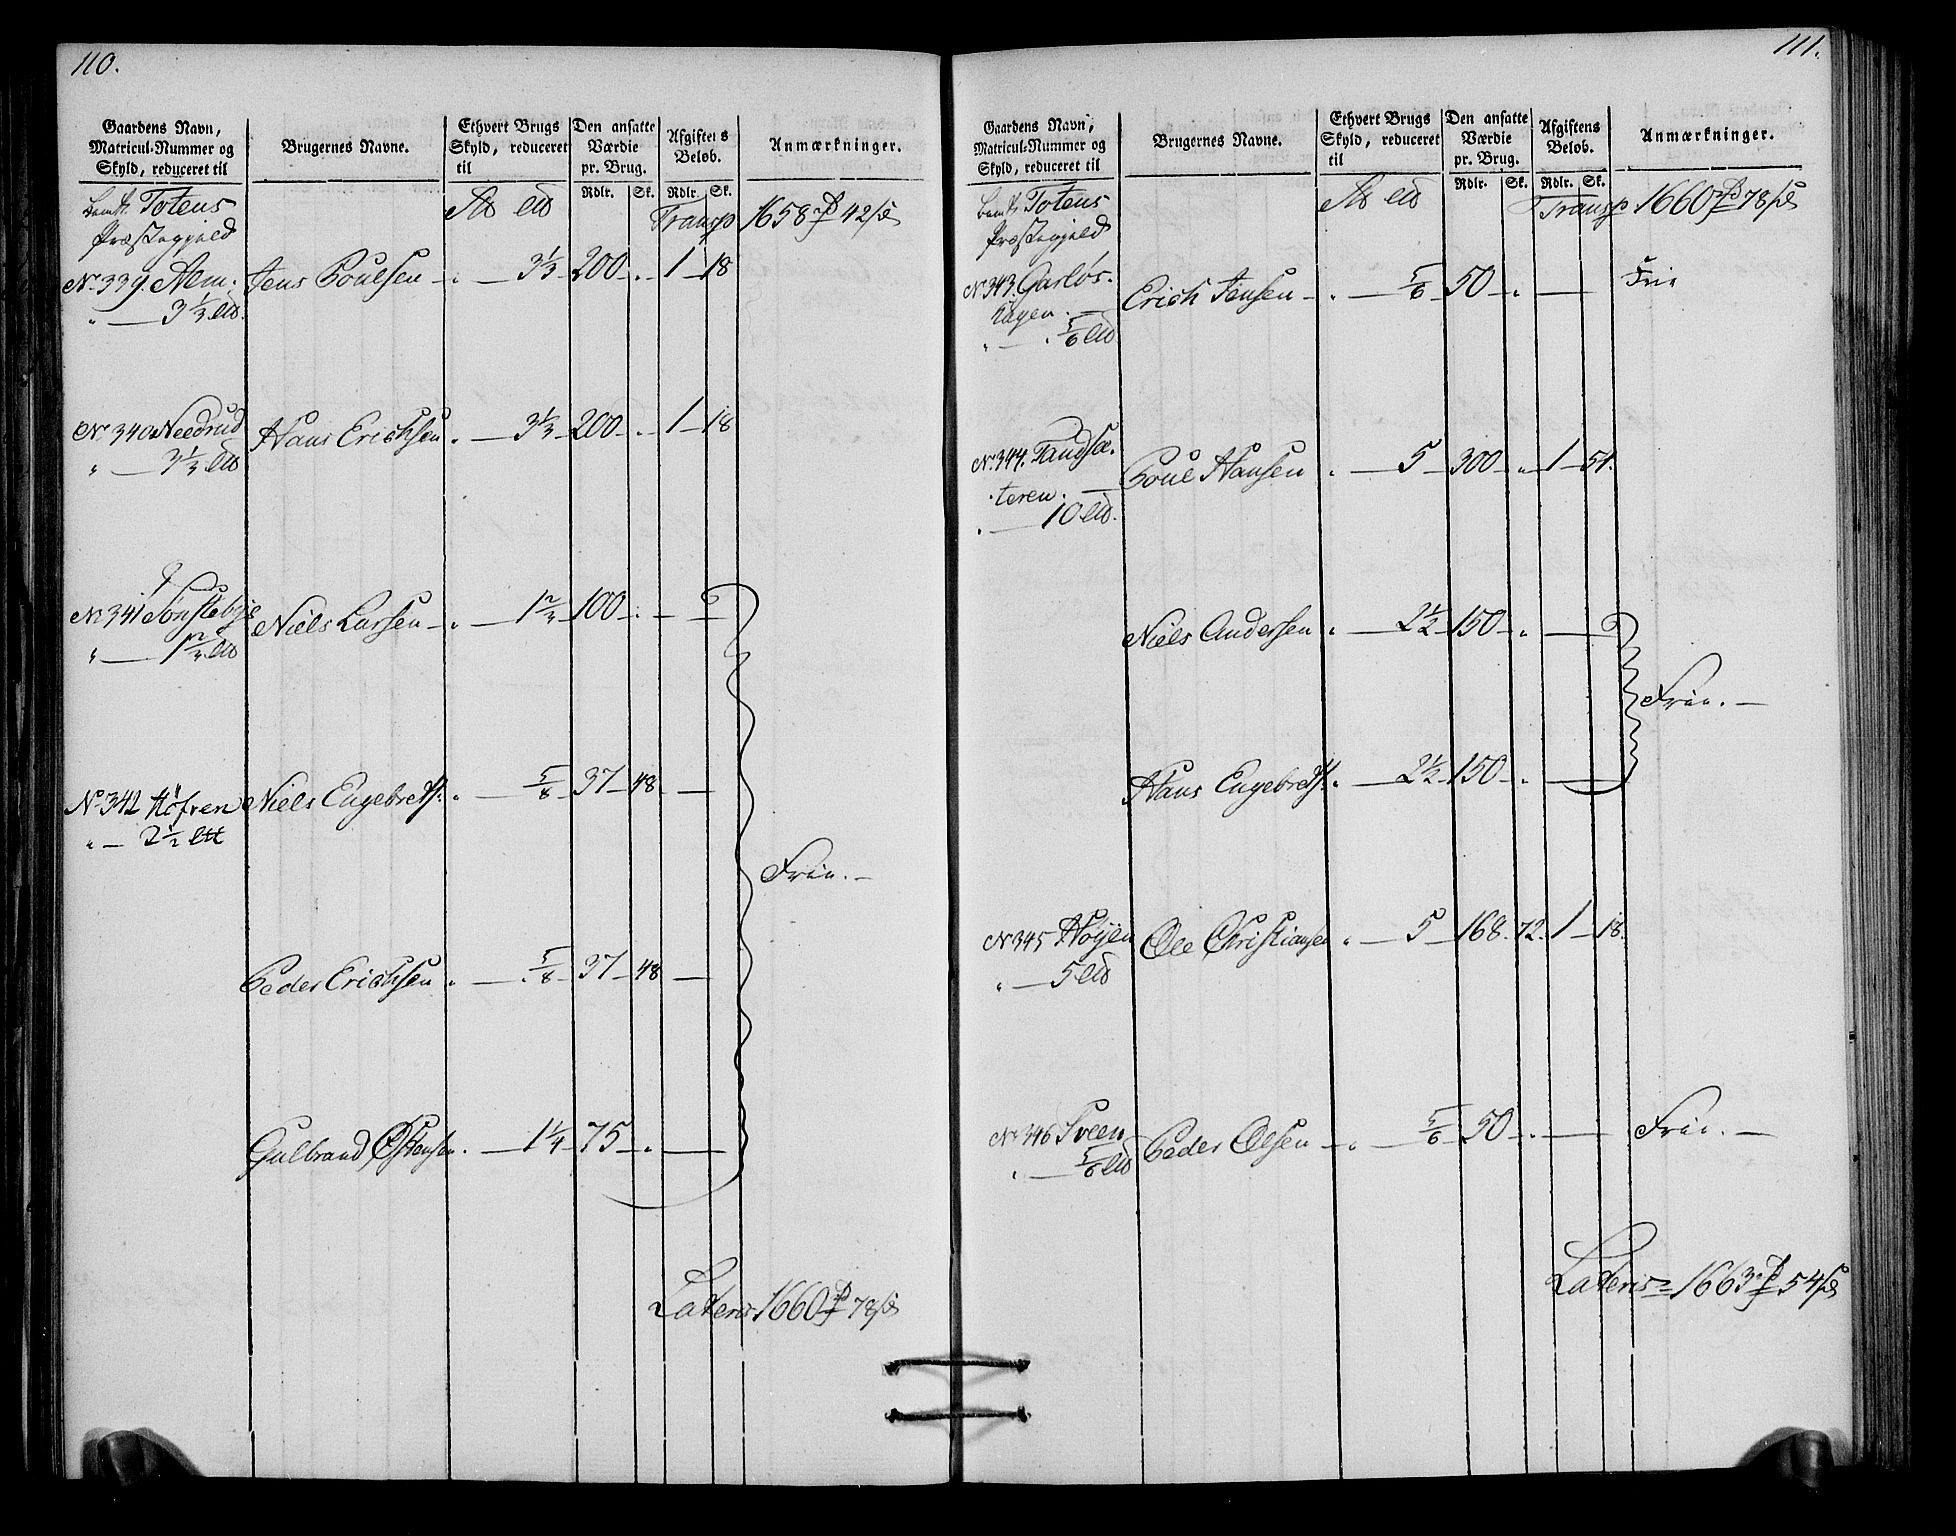 110.
Gaardens Navn, Matricul-Nummer og Skyld, reduceret til | Brugernes Navne. | Ethvert Brugs Skyld, reduceret til | Den ansatte Værdie pr. Brug. Rdlr. Sk. | Afgiftens Beløb. Rdlr. Sk. | Anmærkninger.
Totens Transp 1658 42
Præstegjeld
No 339. Alm: Jens Poulsen - 3 1/3 - 200 - 1 - 18
3 1/3
No 340 Needrud Hans Erichsen - 3 1/3 - 200 - 1 - 18
3 1/3
No 341 Tønstebye Niels Larsen - 1 2/3 - 100
1 2/3
No 342 Høfren Niels Engebretss: - 5/8 - 37 - 48
2 1/2
Frie.
Peder Erichsen - 5/8 - 37 - 48
Gulbrand Østensen - 1 1/4 - 75
Lateris 1660 78
111.
Gaardens Navn, Matricul-Nummer og Skyld, reduceret til | Brugernes Navne. | Ethvert Brugs Skyld, reduceret til | Den ansatte Værdie pr. Brug. Rdlr. Sk. | Afgiftens Beløb. Rdlr. Sk. | Anmærkninger.
Totens Transp 1660 78
Præstegjeld
No 343. Garløs- Erich Jensen - 5/6 - 50 - Frie
hagen.
5/6
No 344. Tandsæ- Poul Hansen - 5 - 300 - 1 - 54.
teren.
10
Niels Andersen - 2 1/2 - 150
Frie.
Hans Engebretss: - 2 1/2 - 150
No 345 Høyen Ole Christiansen - 5 - 168. 72. 1 - 18.
5
No 346 Sveen Peder Olsen - 5/6 - 50 - Frie.
5/6
Lateris 1663 54